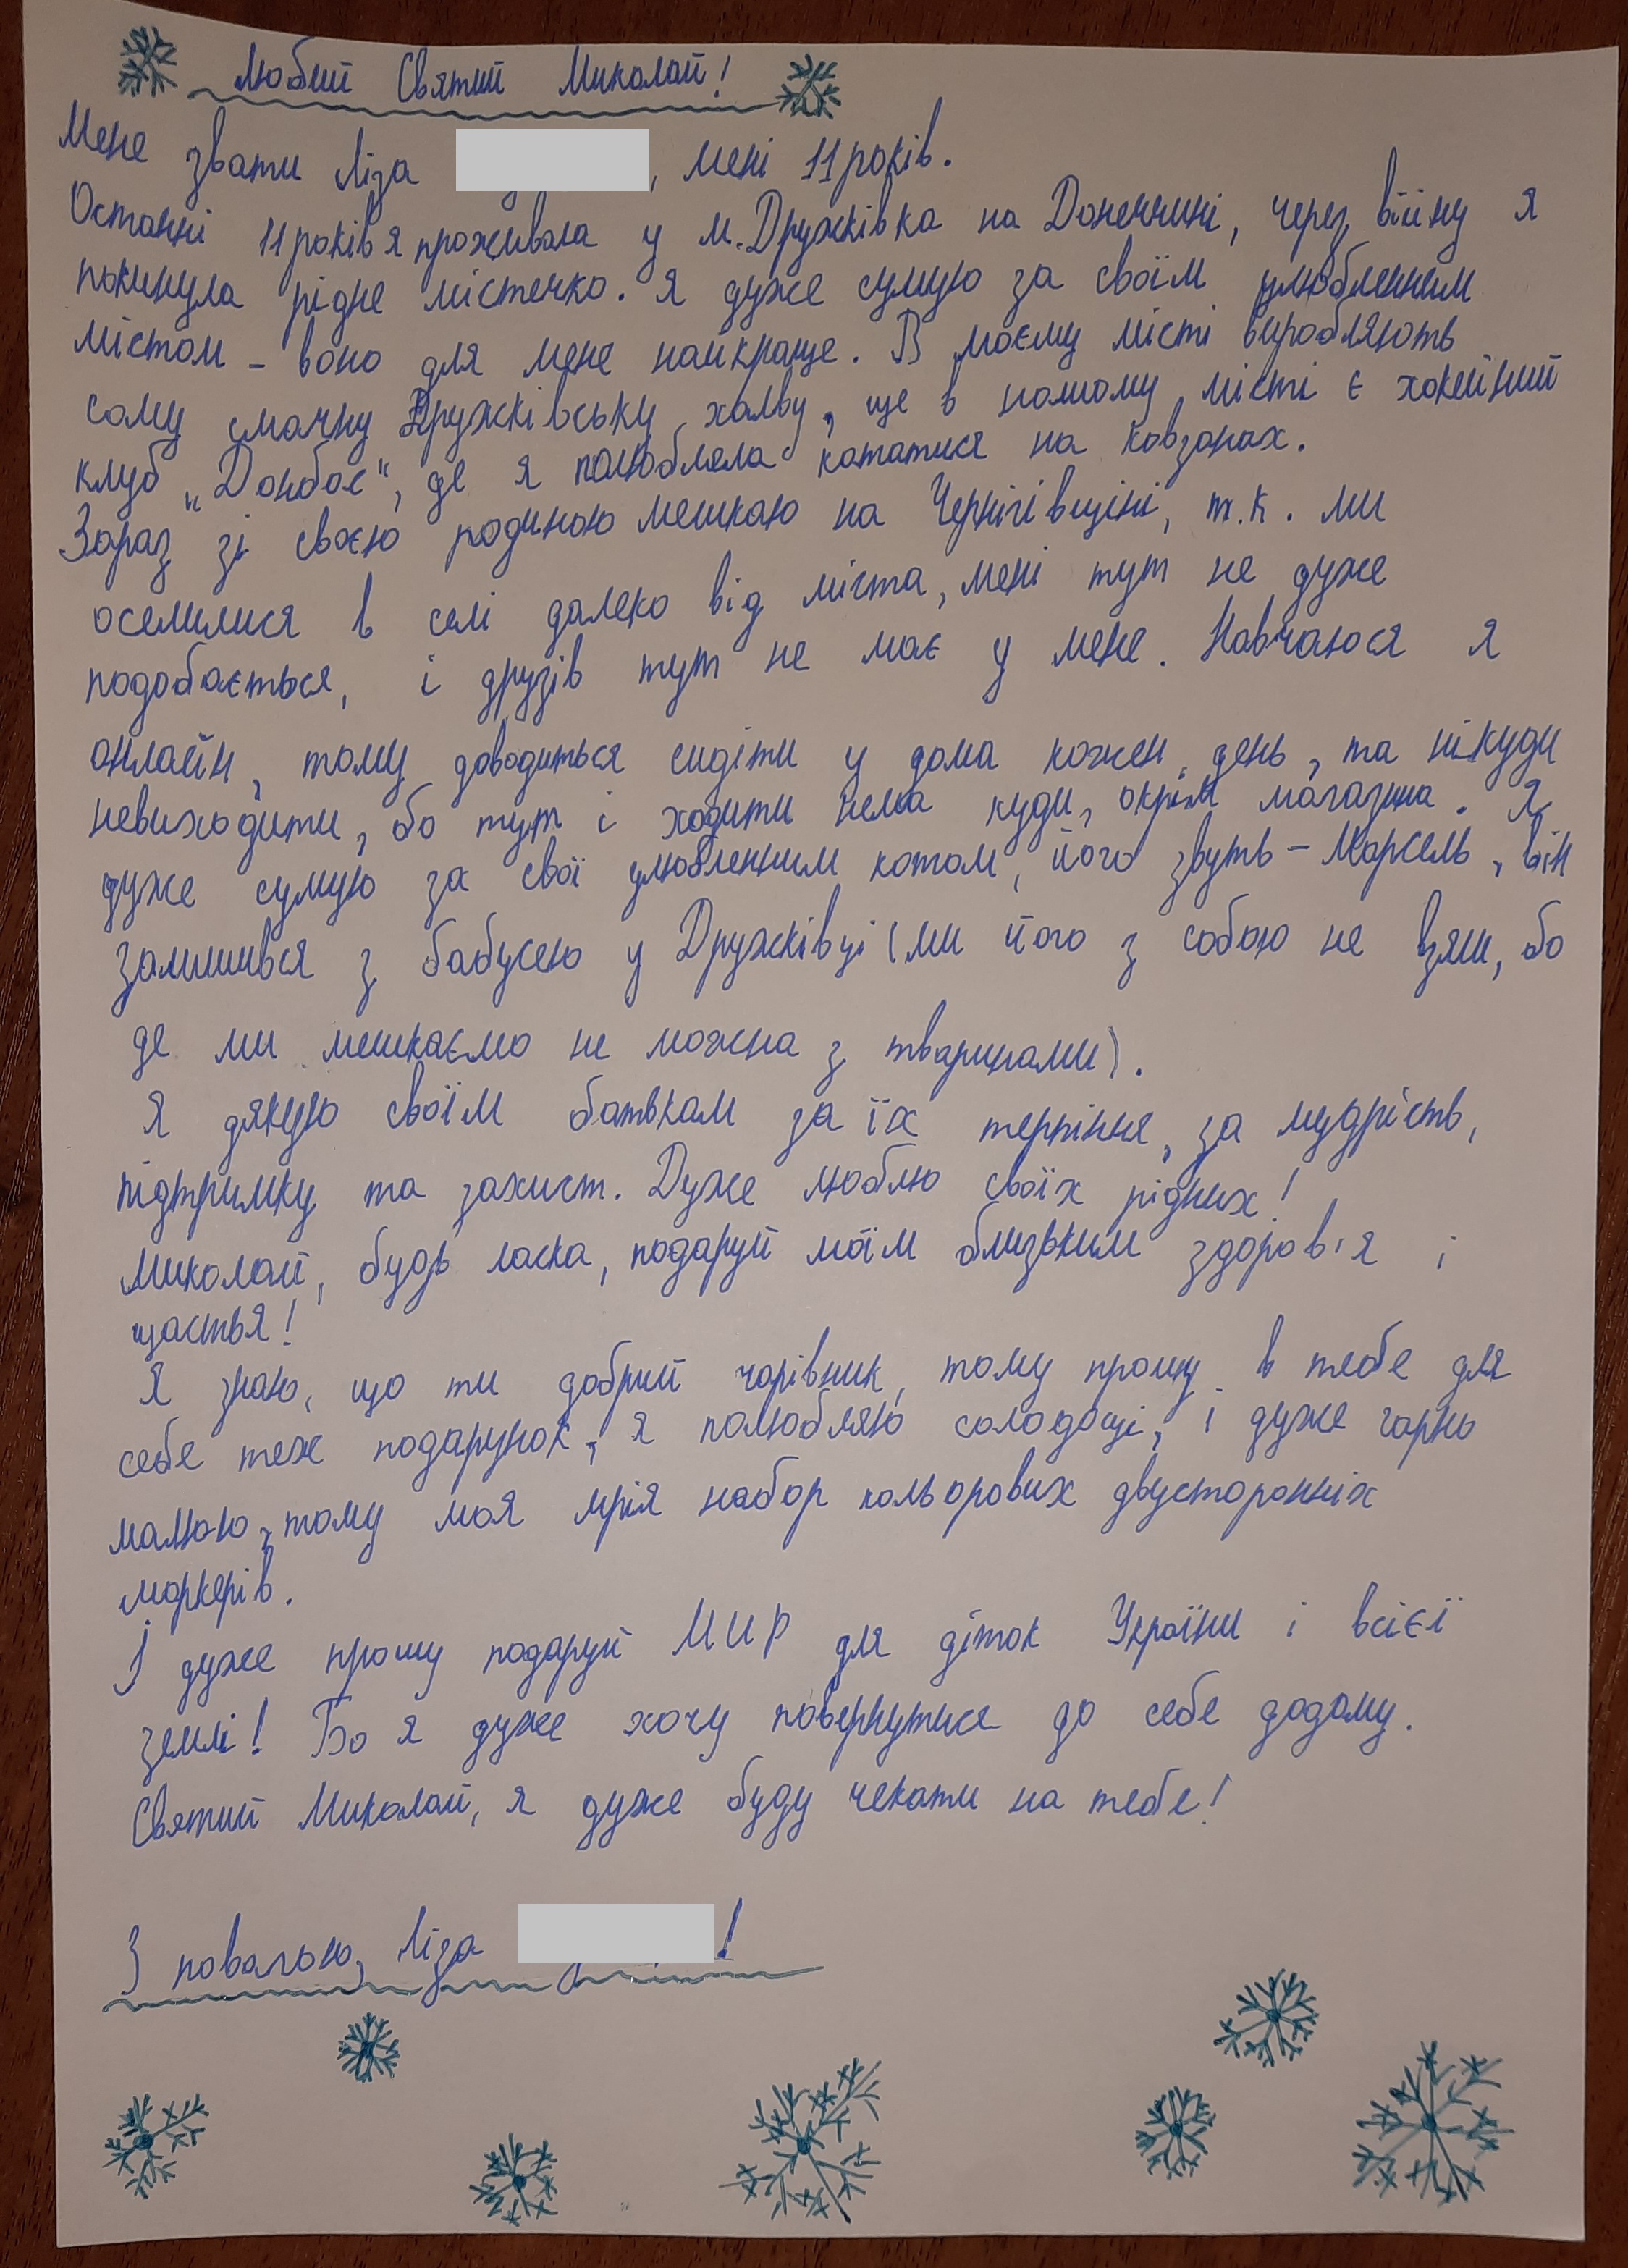 Любий Святий Миколай!
Мене звати Ліза , мені 11 років.
Останні 11 років я проживала у м. Дружківка на Донеччині, через війну я
покинула рідне містечко. Я дуже сумую за своїм улюбленним
містом - воно для мене найкраще. В моєму місті виробляють
саму смачну Дружківську халву, ще в нашому місті є хокейний
клуб „Донбас", де я полюбляла кататися на ковзанах.
Зараз зі своєю родиною мешкаю на Чернігівщіні, т.к. ми
оселилися в селі далеко від міста, мені тут не дуже
подобається, і друзів тут не має у мене. Навчаюся я
онлайн, тому доводиться сидіти у дома кожен день, та нікуди
невиходити, бо тут і ходити нема куди, окрім магазина. Я
дуже сумую за свої улюбленним котом, його звуть - Марсель, він
залишився з бабусею у Дружківці (ми його з собою не взяли, бо
де ми мешкаємо не можна з тваринами).
Я дякую своїм батькам за їх терпіння, за мудрість,
підтримку та захист. Дуже люблю своїх рідних!
Миколай, будь ласка, подаруй моїм близьким здоров'я і
щастья!
Я знаю, що ти добрий чарівник, тому прошу в тебе для
себе теж подарунок, я полюбляю солодощі, і дуже гарно
малюю, тому моя мрія набор кольорових двусторонніх
маркерів.
І дуже прошу подаруй МИР для діток України і всієї
землі! Бо я дуже хочу повернутися до себе додому.
Святий Миколай, я дуже буду чекати на тебе!
З повагою, Ліза !